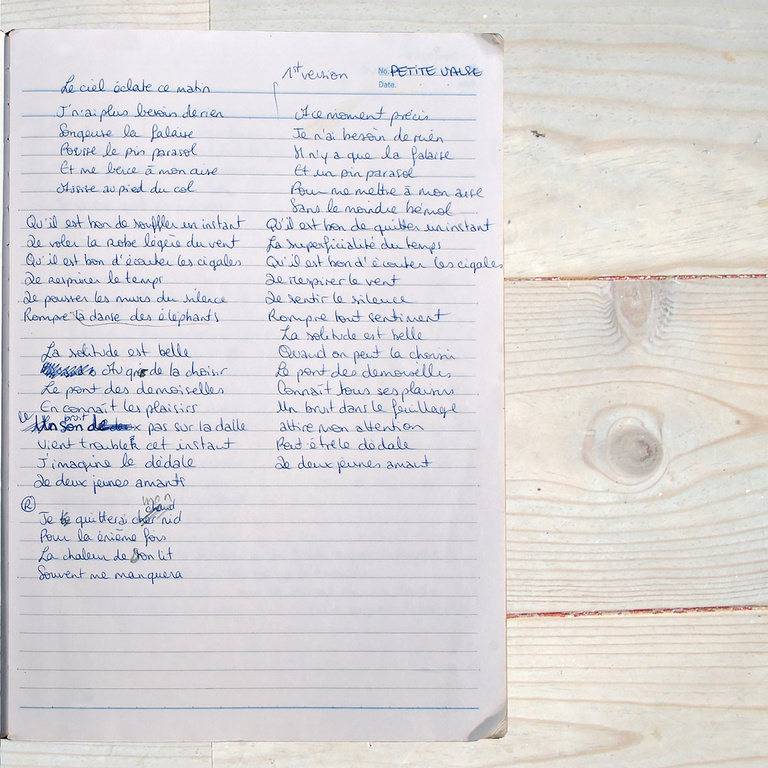 1st version
No. PETITE VALSE
Date.
Le ciel éclate ce matin
J'n'ai plus besoin de rien
Songeuse la falaise
Pousse le pin parasol
Et me berce à mon aise
Assise au pied du col
Qu'il est bon de souffler un instant
De voler la robe légère du vent
Qu'il est bon d'écouter les cigales
De respirer le temps
De pousser les murs du silence
Rompre la danse des éléphants
La solitude est belle
Au gré de la choisir
Le pont des demoiselles
En connaît les plaisirs
Le bruit de pas sur la dalle
Vient troubler cet instant
J'imagine le dédale
De deux jeunes amants
R
Je quitterai mon chaud nid
Pour la énième fois
La chaleur de son lit
Souvent me manquera
A ce moment précis
Je n'ai besoin de rien
Il n'y a que la falaise
Et un pin parasol
Pour me mettre à mon aise
Sans le moindre bémol
Qu'il est bon de quitter un instant
La superficialité du temps
Qu'il est bon d'écouter les cigales
De respirer le vent
De sentir le silence
Rompre tout sentiment
La solitude est belle
Quand on peut la choisir
Le pont des demoiselles
Connaît tous ses plaisirs
Un bruit dans le feuillage
attire mon attention
Peut être le dédale
De deux jeunes amant